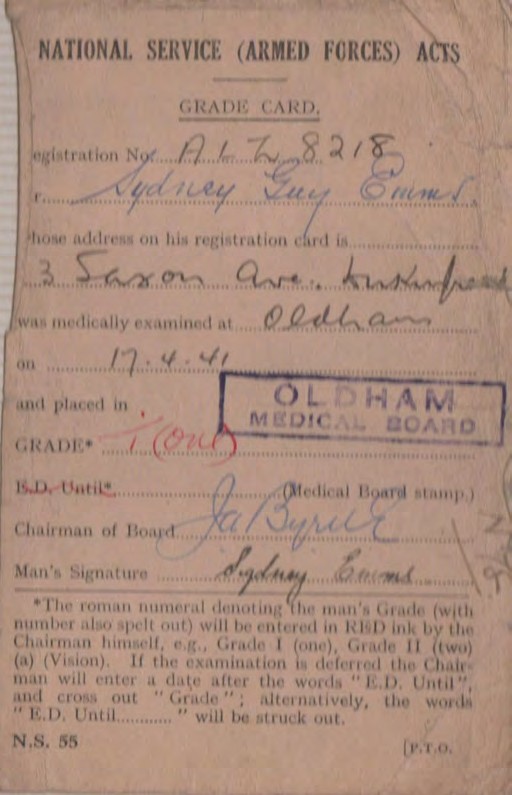 NATIONAL SERVICE (ARMED FORCES) ACTS
GRADE CARD.
egistration No. A L Z 8218
r. Sydney Guy Emms.
hose address on his registration card is
3 Saxon Ave. Dukinfield
was medically examined at Oldham
on 17.4.41
and placed in
OLDHAM
MEDICAL BOARD
GRADE* I (one)
E.D. Until* (Medical Board stamp.)
Chairman of Board Ja Byrne
Man's Signature Sydney Emms
*The roman numeral denoting the man's Grade (with
number also spelt out) will be entered in RED ink by the
Chairman himself, e.g., Grade I (one), Grade II (two)
(a) (Vision). If the examination is deferred the Chair-
man will enter a date after the words "E.D. Until",
and cross out "Grade"; alternatively, the words
"E.D. Until............" will be struck out.
N.S. 55 [P.T.O.